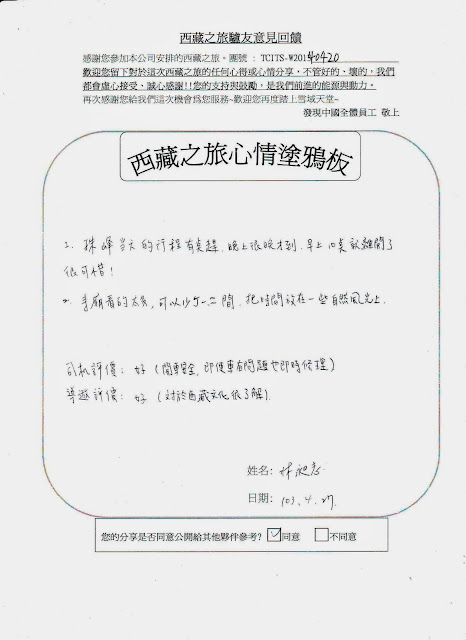 西藏之旅驢友意見回饋
感謝您參加本公司安排的西藏之旅。團號：TCITS-W20140420
歡迎您留下對於這次西藏之旅的任何心得或心情分享，不管好的、壞的，我們
都會虛心接受、誠心感謝!!您的支持與鼓勵，是我們前進的能源與動力。
再次感謝您給我們這次機會為您服務~歡迎您再度踏上雪域天堂~
發現中國全體員工 敬上
西藏之旅心情塗鴉板
1. 珠峰當天的行程有點趕，晚上很晚才到，早上10點就離開了
很可惜！
2. 寺廟看的太多，可以少個一二間，把時間放在一些自然風光上.
司机評價：好（開車安全，即使車有問題也即時修理）
導遊評價：好（对於西藏文化很了解）.
姓名：林
日期：103.4.27.
您的分享是否同意公開給其他夥伴參考? ☑同意 □不同意